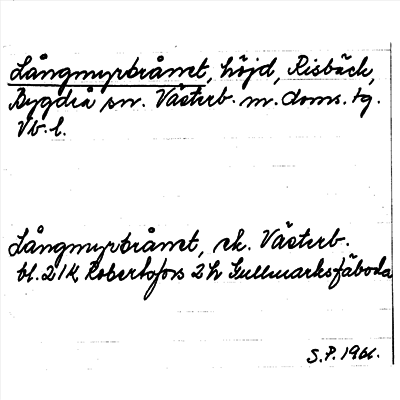 Långmyrbrånet, höjd, Risbäck,
Bygdeå sn. Västerb. m. doms. tg.
Vb. l.
Långmyrbrånet, ek. Västerb.
bl. 21K Robertsfors 2h Gullmarksfäboda
S.P. 1961.